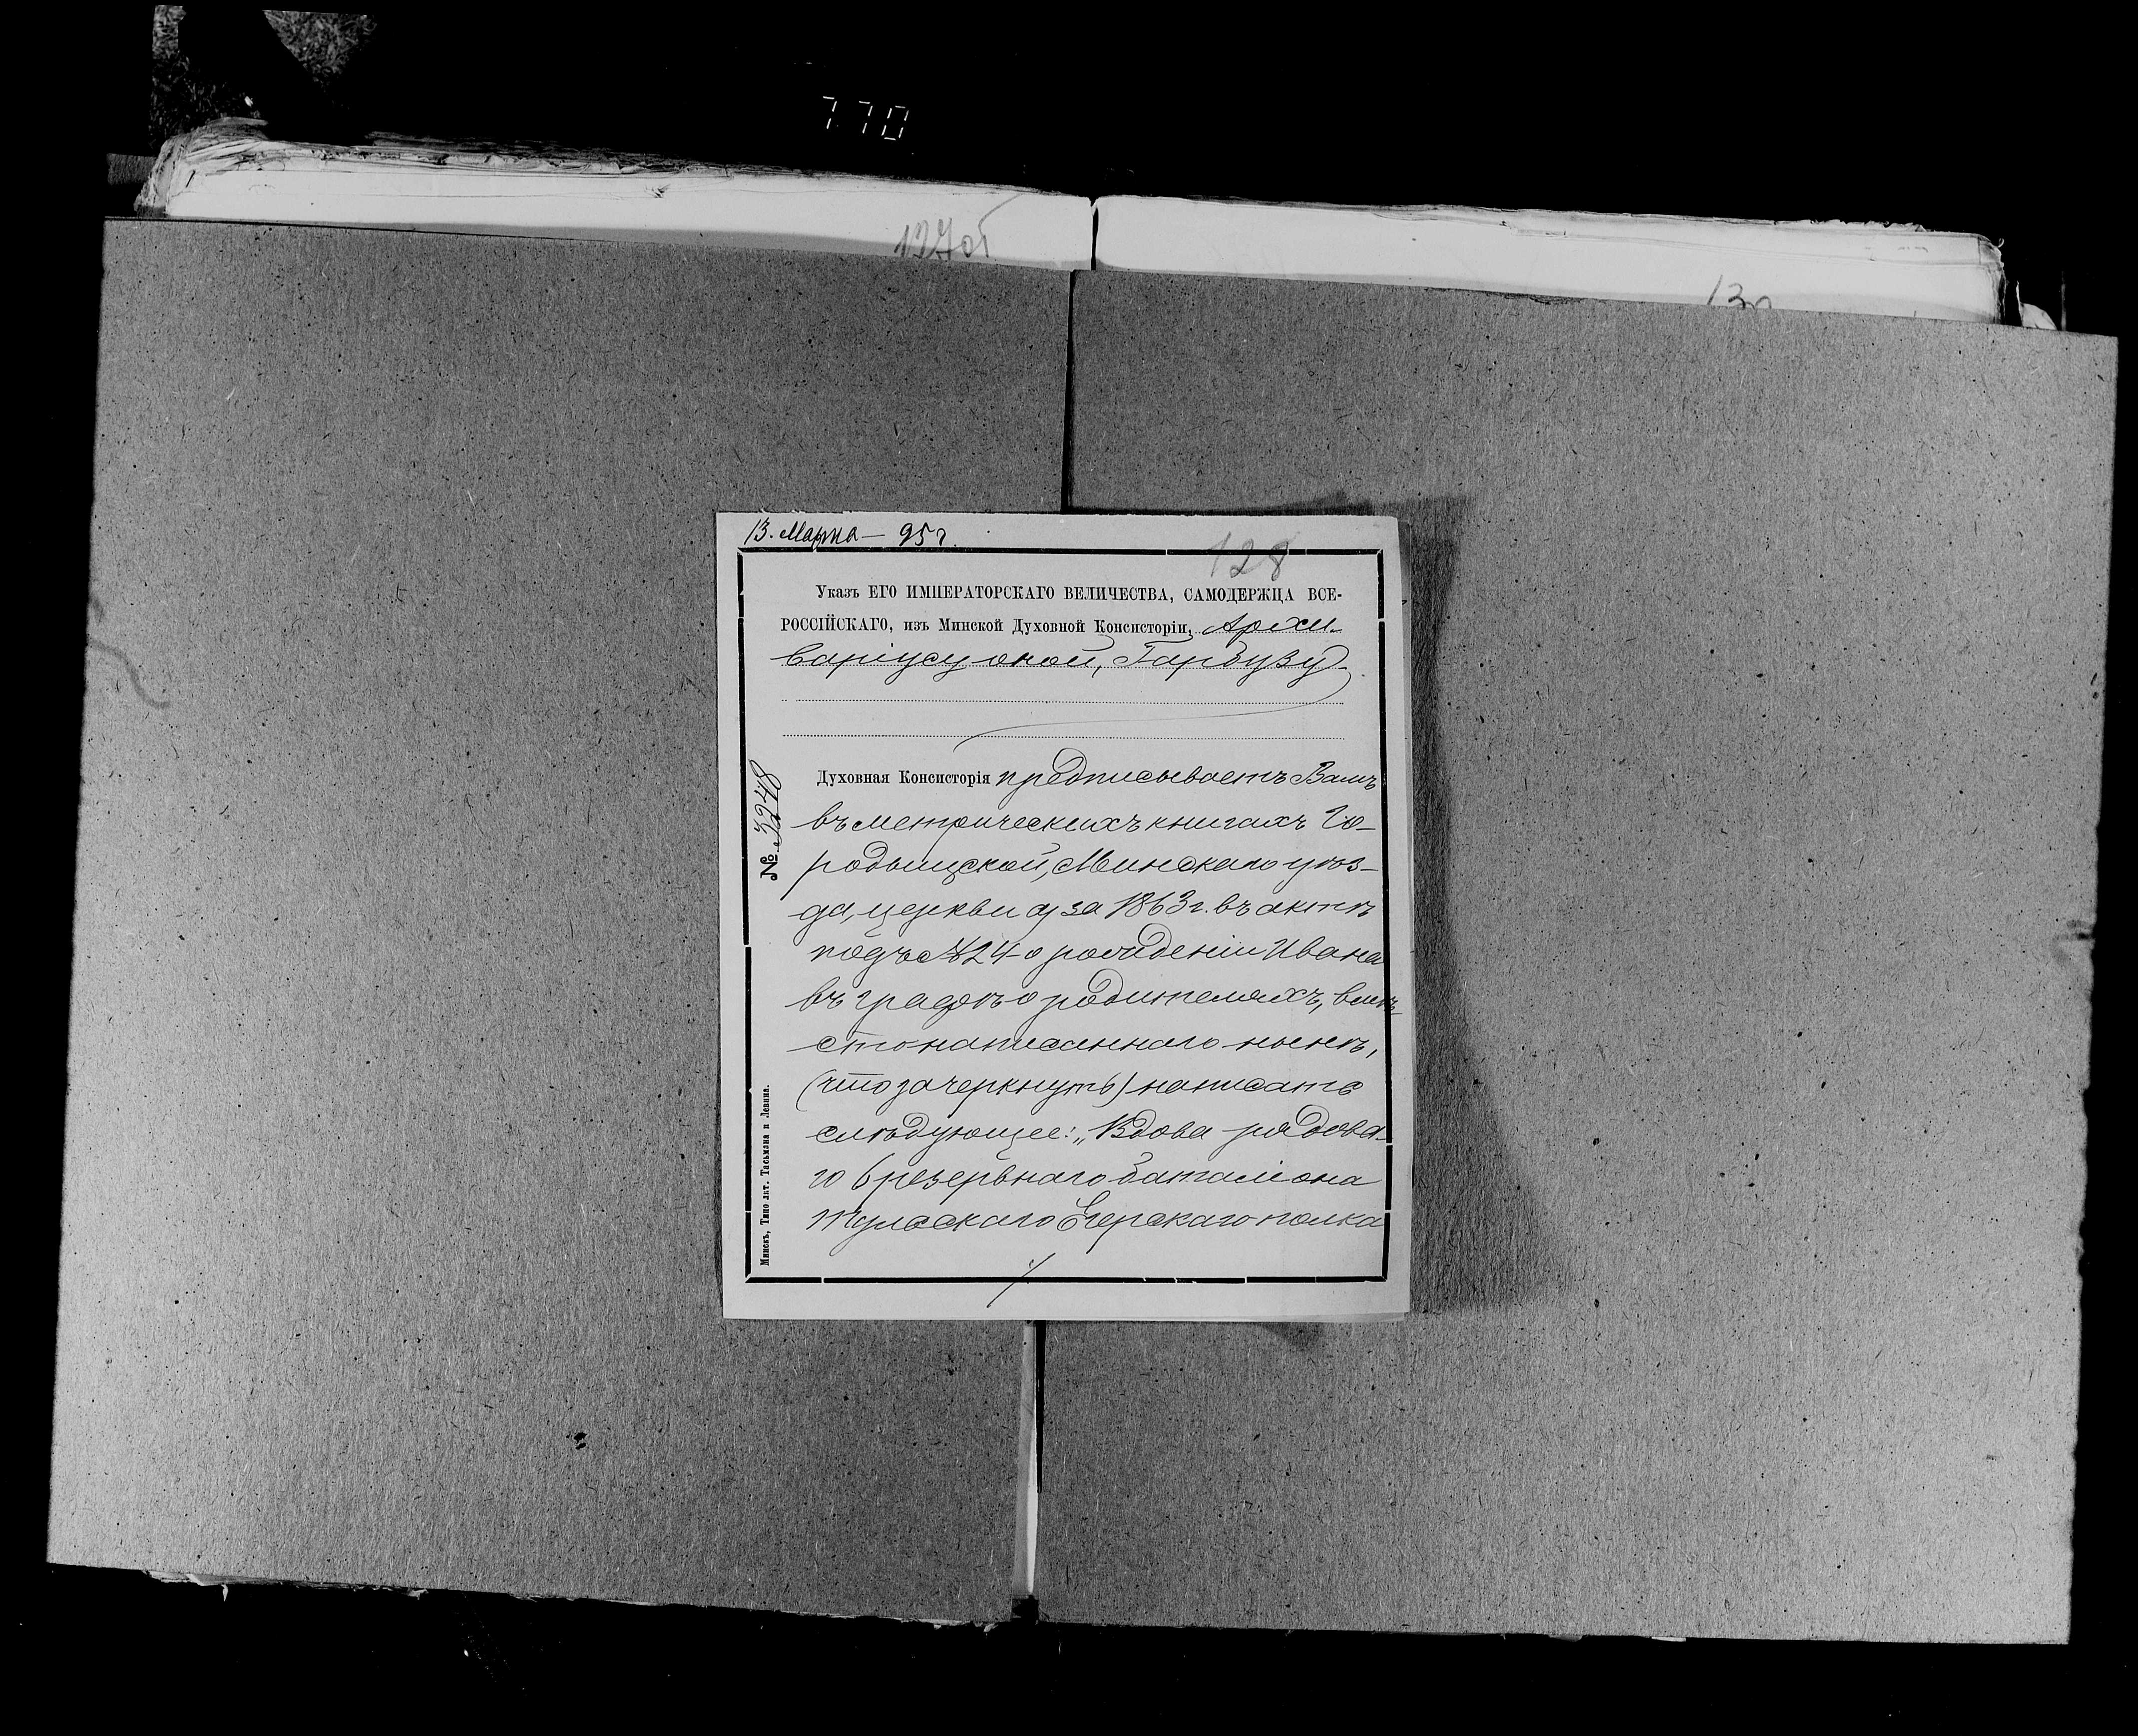 770
127об
130
13. Марта — 95 г.
128
Указъ ЕГО ИМПЕРАТОРСКАГО ВЕЛИЧЕСТВА, САМОДЕРЖЦА ВСЕ-
РОССІЙСКАГО, изъ Минской Духовной Консисторіи, Архи-
варіусу оной, Гарбузу
№ 3248
Духовная Консисторія предписываетъ Вамъ
въ метрическихъ книгахъ Го-
родыщской, Минскаго уѣз-
да, церкви за 1863 г. въ актѣ
подъ № 24 о рожденіи Ивана
въ графѣ о родителяхъ, вмѣ-
сто написаннаго нынѣ,
(что зачеркнуть) написать
слѣдующее: „Вдова рядова-
го 6 резервнаго баталіона
Тульскаго Егерскаго полка
Минскъ, Типо лит. Тасьмана и Левина.